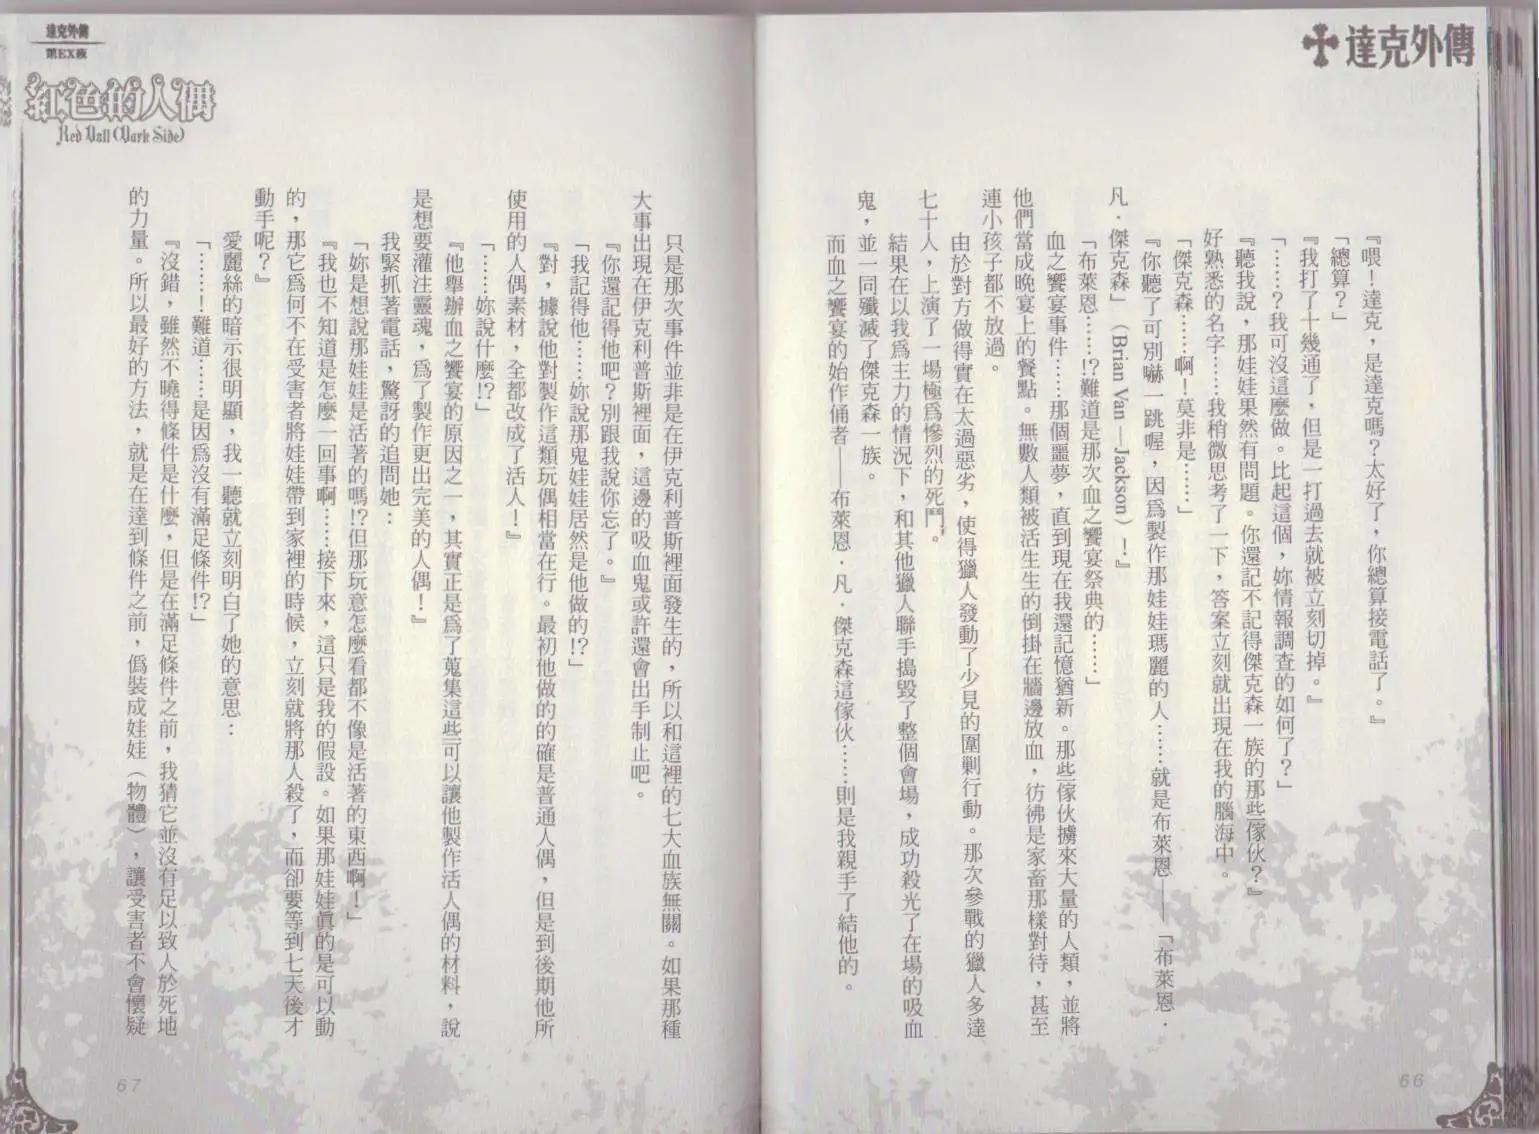 達克外傳
『喂！達克，是達克嗎？太好了，你總算接電話了。』
「總算？」
『我打了十幾通了，但是一打過去就被立刻切掉。』
「……？我可沒這麼做。比起這個，妳情報調查的如何了？」
『聽我說，那娃娃果然有問題。你還記不記得傑克森一族的那些傢伙？』
好熟悉的名字……我稍微思考了一下，答案立刻就出現在我的腦海中。
「傑克森……啊！莫非是……」
『你聽了可別嚇一跳喔，因爲製作那娃娃瑪麗的人……就是布萊恩——「布萊恩．
凡．傑克森」（Brian Van —Jackson）！』
「布萊恩……!?難道是那次血之饗宴祭典的……」
血之饗宴事件……那個噩夢，直到現在我還記憶猶新。那些傢伙擄來大量的人類，並將
他們當成晚宴上的餐點。無數人類被活生生的倒掛在牆邊放血，彷彿是家畜那樣對待，甚至
連小孩子都不放過。
由於對方做得實在太過惡劣，使得獵人發動了少見的圍剿行動。那次參戰的獵人多達
七十人，上演了一場極爲慘烈的死鬥。
結果在以我爲主力的情況下，和其他獵人聯手搗毀了整個會場，成功殺光了在場的吸血
鬼，並一同殲滅了傑克森一族。
而血之饗宴的始作俑者——布萊恩．凡．傑克森這傢伙……則是我親手了結他的。
66
達克外傳
第EX夜
紅色的人偶
Red Doll (Dark Side)
只是那次事件並非是在伊克利普斯裡面發生的，所以和這裡的七大血族無關。如果那種
大事出現在伊克利普斯裡面，這邊的吸血鬼或許還會出手制止吧。
『你還記得他吧？別跟我說你忘了。』
「我記得他……妳說那鬼娃娃居然是他做的!?」
『對，據說他對製作這類玩偶相當在行。最初他做的的確是普通人偶，但是到後期他所
使用的人偶素材，全都改成了活人！』
「……妳說什麼!?」
『他舉辦血之饗宴的原因之一，其實正是爲了蒐集這些可以讓他製作活人偶的材料，說
是想要灌注靈魂，爲了製作更出完美的人偶！』
我緊抓著電話，驚訝的追問她：
「妳是想說那娃娃是活著的嗎!?但那玩意怎麼看都不像是活著的東西啊！」
『我也不知道是怎麼一回事啊……接下來，這只是我的假設。如果那娃娃真的是可以動
的，那它爲何不在受害者將娃娃帶到家裡的時候，立刻就將那人殺了，而卻要等到七天後才
動手呢？』
愛麗絲的暗示很明顯，我一聽就立刻明白了她的意思：
「……！難道……是因爲沒有滿足條件!?」
『沒錯，雖然不曉得條件是什麼，但是在滿足條件之前，我猜它並沒有足以致人於死地
的力量。所以最好的方法，就是在達到條件之前，僞裝成娃娃（物體），讓受害者不會懷疑
67